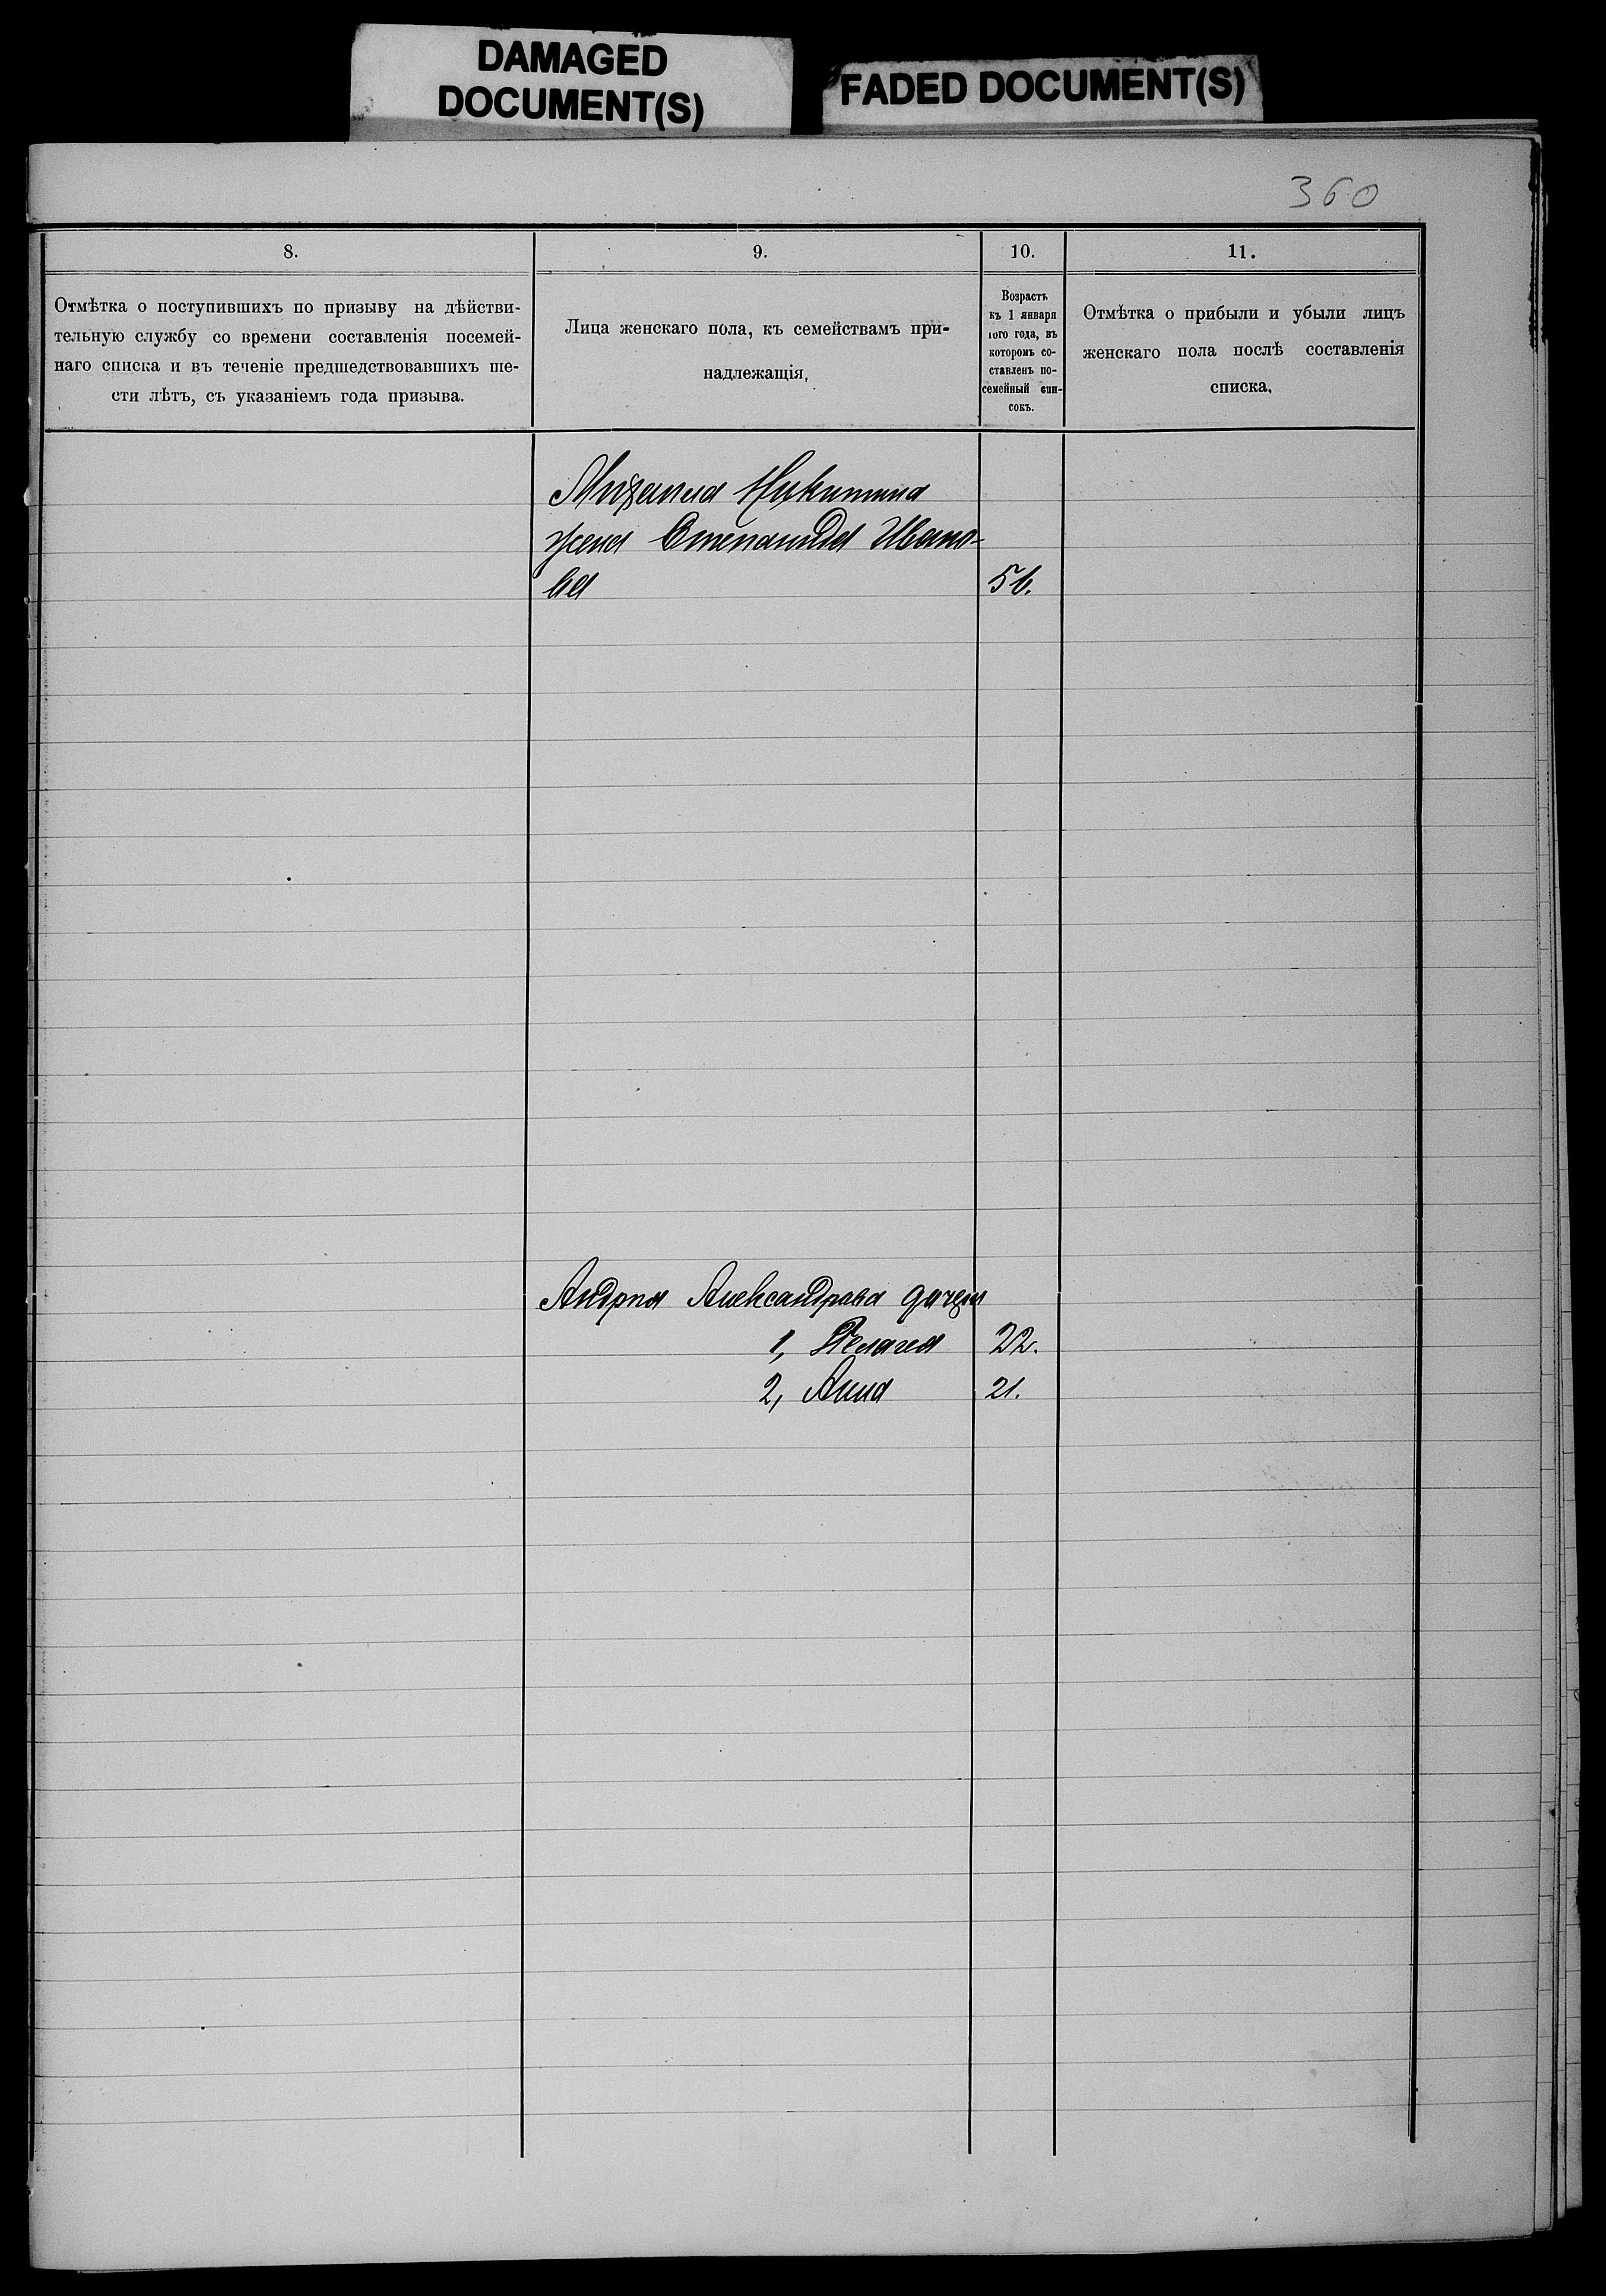 DAMAGED
DOCUMENT(S)
FADED DOCUMENT(S)
360
8.
9.
10.
11.
Отмѣтка о поступившихъ по призыву на дѣйстви-
тельную службу со времени составленія посемей-
наго списка и въ теченіе предшедствовавшихъ ше-
сти лѣтъ, съ указаніемъ года призыва.
Лица женскаго пола, къ семействамъ при-
надлежащія,
Возрастъ
къ 1 января
того года, въ
которомъ со-
ставленъ по-
семейный спи-
сокъ.
Отмѣтка о прибыли и убыли лицъ
женскаго пола послѣ составленія
списка.
Михаила Никитина
жена Степанида Ивано-
ва 56.
Андрея Александрова дочери
1, Пелагея 22.
2, Анна 21.